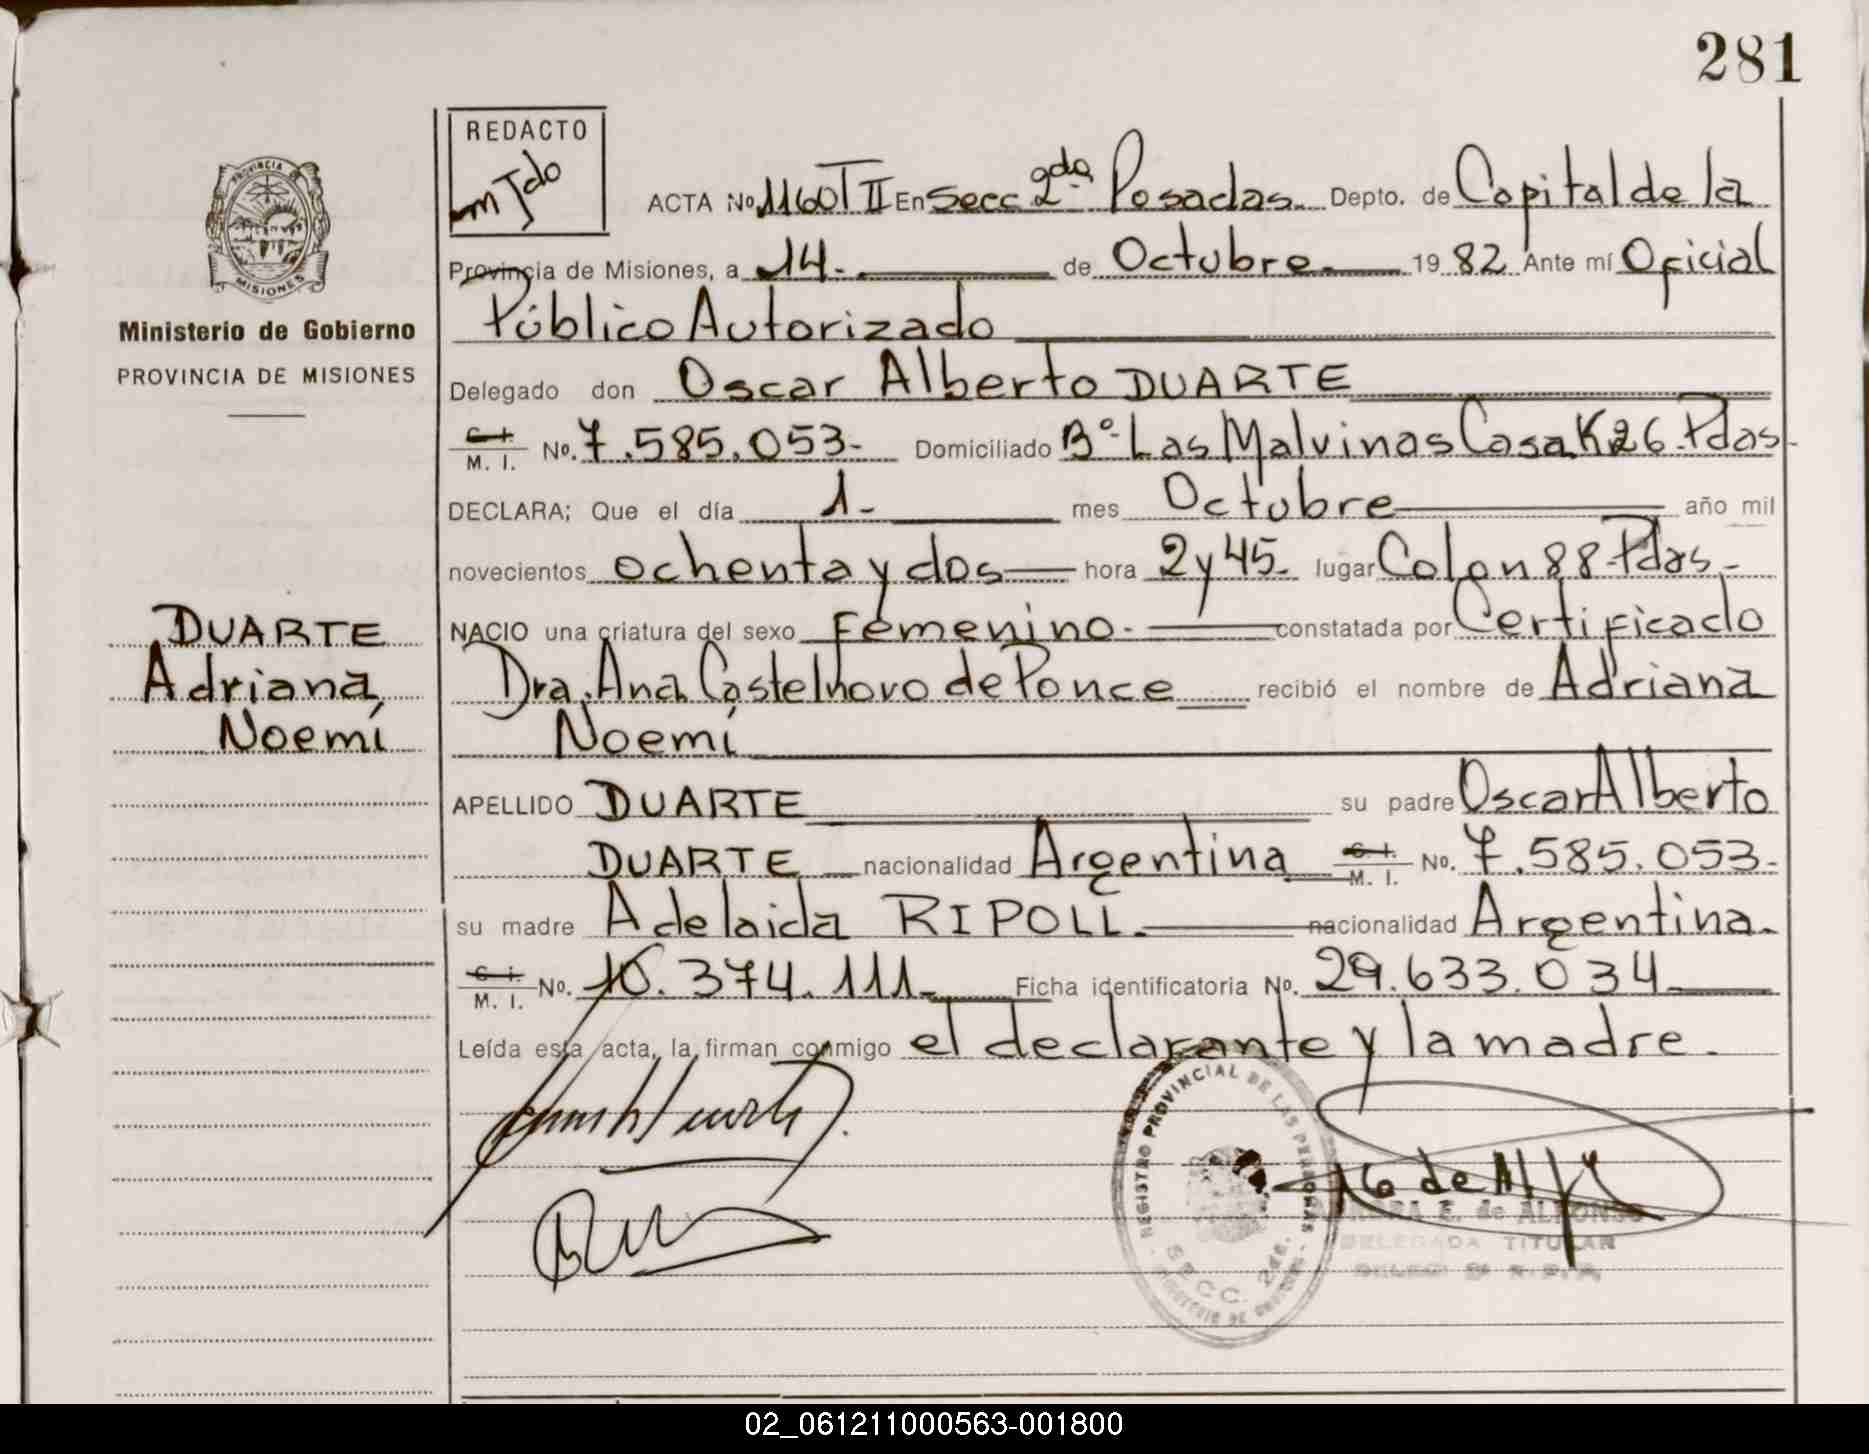 281
REDACTO
ACTA No. 1160 T II En Secc 2da Posadas. Depto. de Capital de la
Provincia de Misiones, a 14. de Octubre. 19 82 Ante mí Oficial
Público Autorizado
Delegado don Oscar Alberto DUARTE
C. I. M. I. No. 7.585.053- Domiciliado Bº Las Malvinas Casa K26 Pdas-
DECLARA; Que el día 1- mes Octubre año mil
novecientos ochenta y dos hora 2 y 45. lugar Colon 88 Pdas-
NACIO una criatura del sexo Femenino. constatada por Certificado
Dra. Ana Castelnovo de Ponce recibió el nombre de Adriana
Noemí
APELLIDO DUARTE su padre Oscar Alberto
DUARTE nacionalidad Argentina C. I. M. I. No. 7.585.053-
su madre Adelaida RIPOLL. nacionalidad Argentina.
C. I. M. I. No. 10.374.111- Ficha identificatoria No. 29.633.034
Leída esta acta, la firman conmigo el declarante y la madre.
PROVINCIA
MISIONES
Ministerio de Gobierno
PROVINCIA DE MISIONES
DUARTE
Adriana
Noemí
REGISTRO PROVINCIAL DE LAS PERSONAS
SECC. 2da.
E. de ALFONSO
DELEGADA TITULAR
02_061211000563-001800